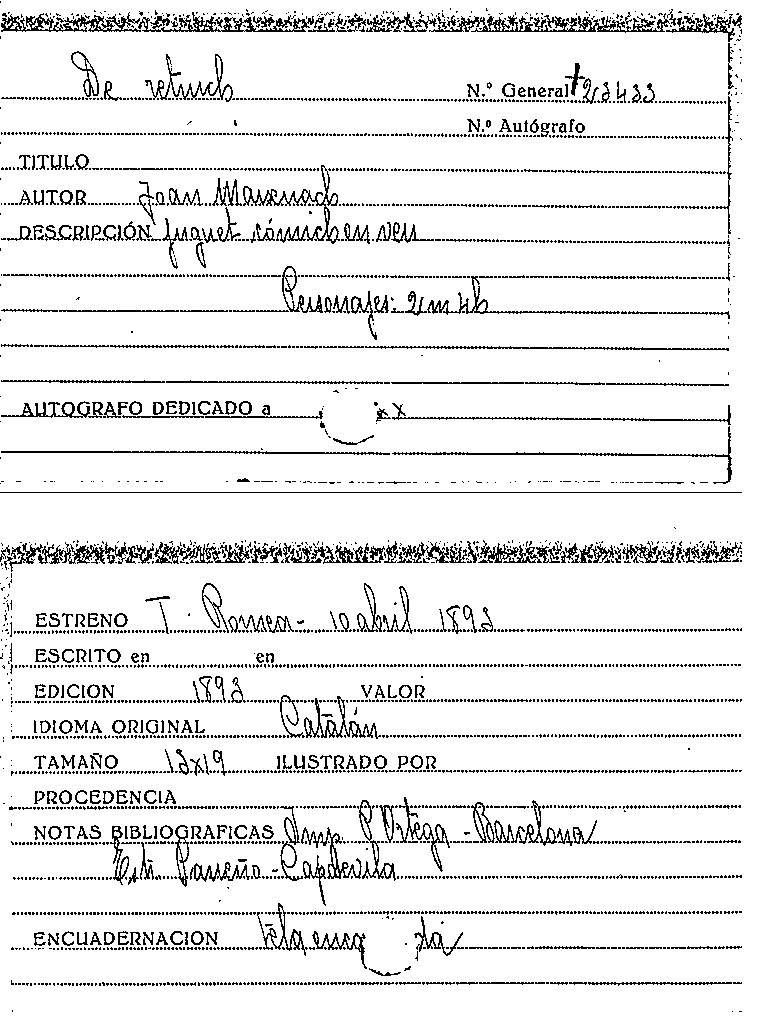 De retruch
N.º General 23433
N.º Autógrafo
TITULO
AUTOR Joan Manxuach
DESCRIPCIÓN Juguet cómich en vers
Personajes: 2 m 4 h
AUTOGRAFO DEDICADO a
ESTRENO T. Romea - 10 abril 1893
ESCRITO en en
EDICION 1893 VALOR
IDIOMA ORIGINAL Catalán
TAMAÑO 13x19 ILUSTRADO POR
PROCEDENCIA
NOTAS BIBLIOGRAFICAS Imp. P. Ortega - Barcelona
Estr. Parreño - Capdevila
ENCUADERNACION Tela